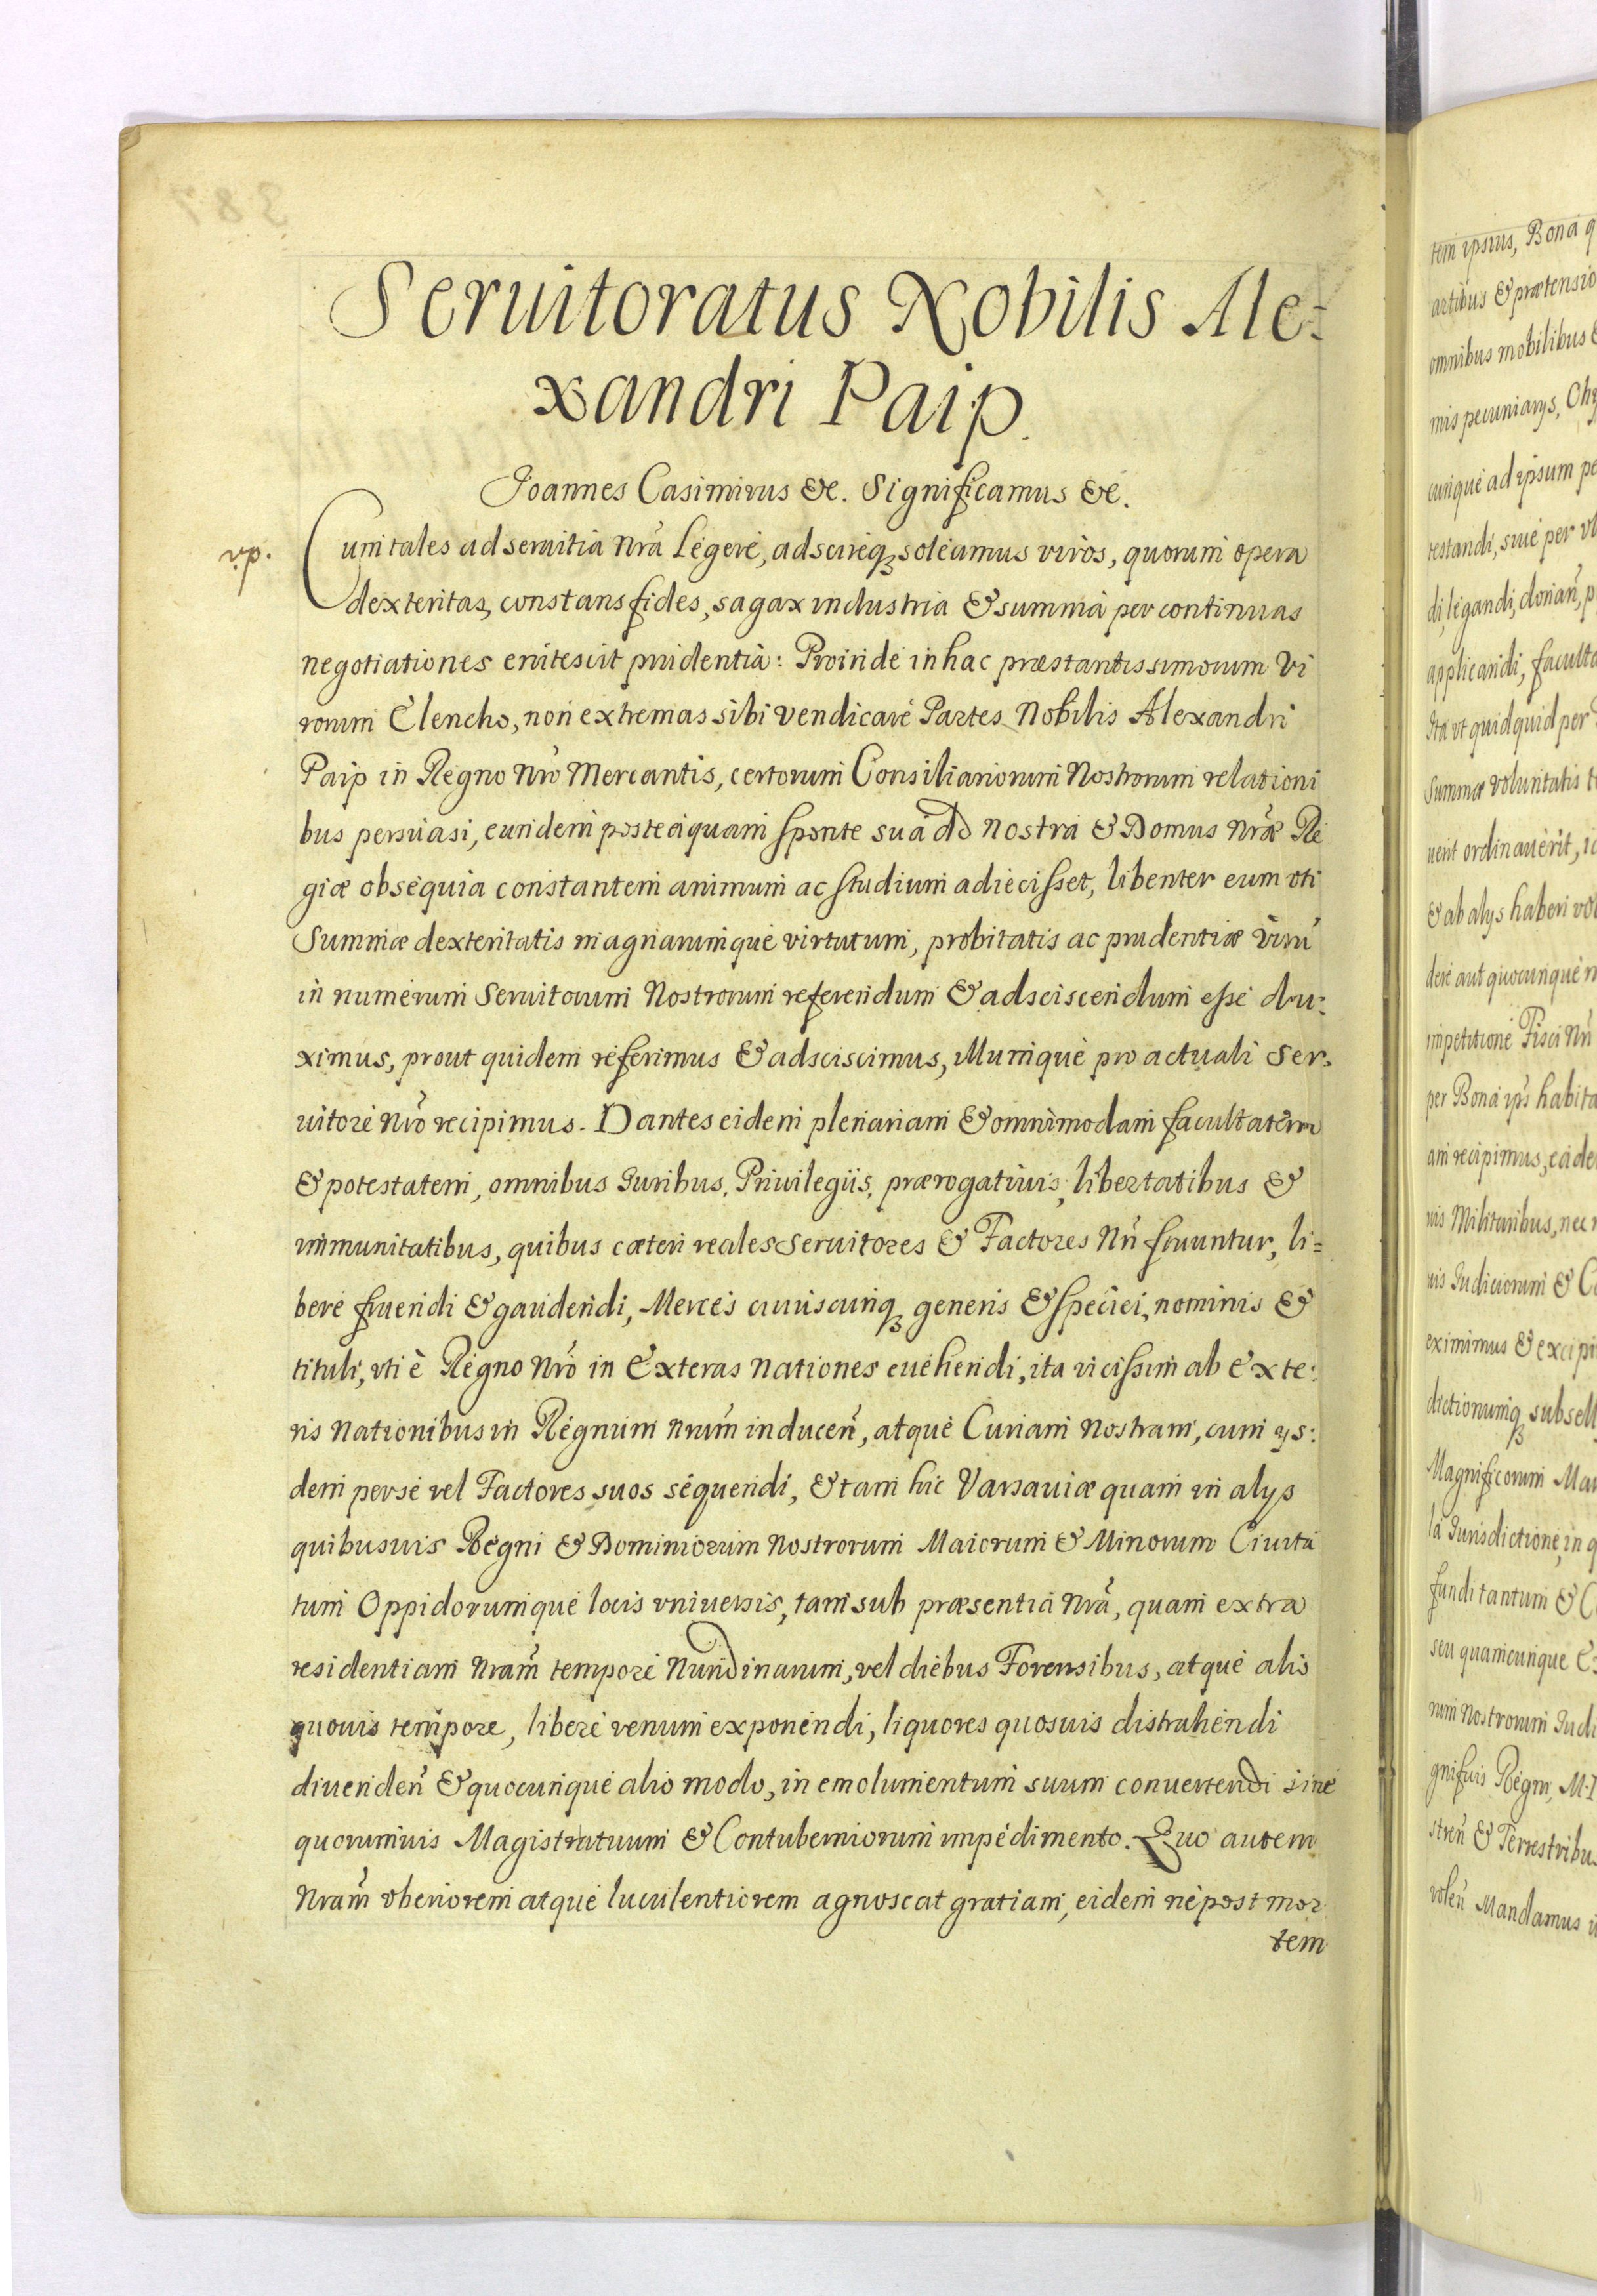 Seruitoratus Nobilis Ale=
xandri Paip.
Joannes Casimirus &c. Significamus &c.
vp.
Cum tales ad seruitia nrã Legere, adscireq3 soleamus viros, quorum opera
dexteritas, constans fides, sagax industria & summa per continuas
negotiationes enitescit prudentia: Proinde in hac præstantissimorum Vi
rorum Elencho, non extremas sibi vendicare Partes Nobilis Alexandri
Paip in Regno Nrõ Mercantis, certorum Consiliariorum Nostrorum relationi
bus persuasi, eundem posteaquam sponte sua ad Nostra & Domus Nrã Re
giæ obsequia constantem animum ac studium adiecisset, libenter eum vti
Summæ dexteritatis magnarumque virtutum, probitatis ac prudentiæ virũ
in numerum Seruitorum Nostrorum referendum & adsciscendum esse du=
ximus, prout quidem referimus & adsciscimus, Illumque pro actuali Ser=
uitore Nrõ recipimus. Dantes eidem plenariam & omnimodam facultatem
& potestatem, omnibus Iuribus, Priuilegiis, prærogatiuis, libertatibus &
immunitatibus, quibus cæteri reales Seruitores & Factores Nrĩ fruuntur, li=
bere fruendi & gaudendi, Merces cuiuscunq3 generis & speciei, nominis &
tituli, vti è Regno Nrõ in Exteras Nationes euehendi, ita vicissim ab Exte=
ris Nationibus in Regnum Nrum̃ induceñ, atque Curiam Nostram, cum ys=
dem per se vel Factores suos sequendi, & tam hic Varsauiæ quam in alys
quibusuis Regni & Dominiorum Nostrorum Maiorum & Minorum Ciuita
tum Oppidorumque locis vniuersis, tam sub præsentia Nrã, quam extra
residentiam Nram̃ tempore Nundinarum, vel diebus Forensibus, atque alio
quouis tempore, libere venum exponendi, liquores quosuis distrahendi
diuendeñ & quocunque alio modo, in emolumentum suum conuertendi sine
quorumuis Magistratuum & Contuberniorum impedimento. Quo autem
Nram̃ vberiorem atque luculentiorem agnoscat gratiam, eidem ne post mor
tem
tem ipsius, Bona q
artibus & prætensio
omnibus mobilibus &
mis pecuniarys,
cunque ad ipsum pe
testandi, siue per
di, legandi, donañ, p
applicandi, faculta
Ita vt quidquid per
Summæ voluntatis t
uerit ordinauerit, i
& ab alys haberi vo
dere aut quocunque m
impetitione Fisci Nrĩ
per Bona ipś habita
am recipimus, eade
nis Militaribus, nec
uis Iudiciorum & C
eximimus & excipi
dictionumq3 subsell
Magnificorum Mar
la Iurisdictione, in q
fundi tantum & C
seu quamcunque E
rum Nostrorum Iudi
gnifuis Regni, M.
streñ & Terrestribu
voleñ Mandamus